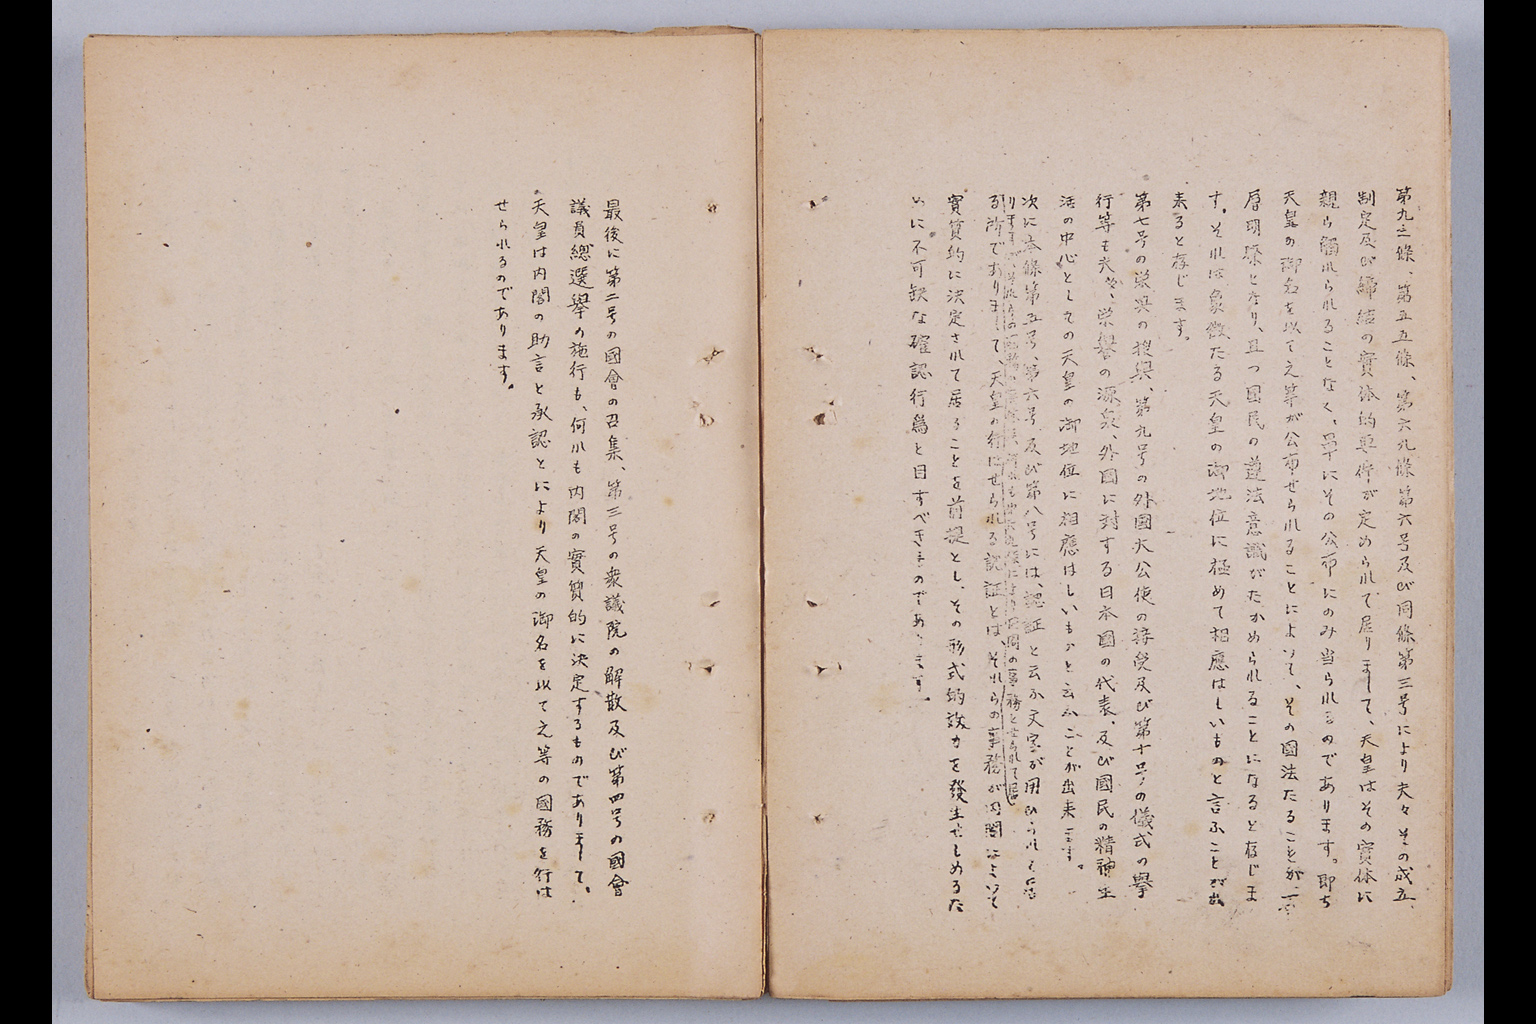 第九二條、第五五條、第六九條第六号及び同條第三号により夫々その成立、
制定及び締結の實体的要件が定められて居りまして、天皇はその實体に
親ら觸れられることなく、單にその公布にのみ当られるのであります。即ち
天皇の御名を以て之等が公布せられることによつて、その國法たることが、一
層明瞭となり、且つ國民の遵法意識がたかめられることになると存じま
す。それは象徴たる天皇の御地位に極めて相應はしいものと言ふことが出
来ると存じます。
第七号の栄典の授與、第九号の外国大公使の接受及び第十号の儀式の擧
行等も夫々、栄譽の源泉、外国に対する日本國の代表、及び國民の精神生
活の中心としての天皇の御地位に相應はしいものと云ふことが出来ます。
次に本條第五号、第六号及び第八号には、認証と云ふ文字が用ひられて居
りますが、内閣の事務とせられて居
る所でありまして、天皇の行はせられる認証とは、それらの事務が内閣によつて
實質的に決定されて居ることを前提とし、その形式的效力を發生せしめるた
めに不可缺な確認行爲と目すべきものであります。
最後に第二号の國會の召集、第三号の衆議院の解散及び第四号の國會
議員總選擧の施行も、何れも内閣の實質的に決定するものでありまして、
天皇は内閣の助言と承認とにより天皇の御名を以て之等の國務を行は
せられるのであります。